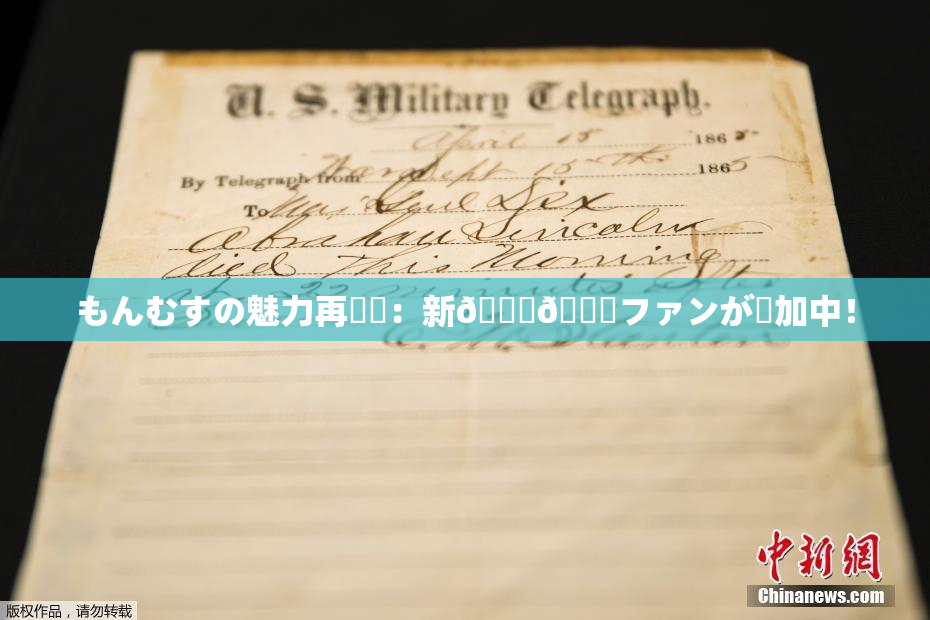 U. S. Military Telegraph.
April 15 1865
By Telegraph from War Dept 15th 1865
To Maj Genl Dix
Abraham Lincoln
died This Morning
22 minutes after
もんむすの魅力再：新ð ð ファンが加中！
E. M. Stanton
中新網
Chinanews.com
版权作品，请勿转载